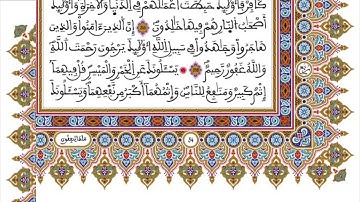 كَافِرٌ فَأُولَٰئِكَ حَبِطَتْ أَعْمَالُهُمْ فِي الدُّنْيَا وَالْآخِرَةِ وَأُولَٰئِكَ
أَصْحَابُ النَّارِ هُمْ فِيهَا خَالِدُونَ إِنَّ الَّذِينَ آمَنُوا وَالَّذِينَ
هَاجَرُوا وَجَاهَدُوا فِي سَبِيلِ اللَّهِ أُولَٰئِكَ يَرْجُونَ رَحْمَتَ اللَّهِ
وَاللَّهُ غَفُورٌ رَحِيمٌ يَسْأَلُونَكَ عَنِ الْخَمْرِ وَالْمَيْسِرِ قُلْ فِيهِمَا
إِثْمٌ كَبِيرٌ وَمَنَافِعُ لِلنَّاسِ وَإِثْمُهُمَا أَكْبَرُ مِنْ نَفْعِهِمَا وَيَسْأَلُونَكَ